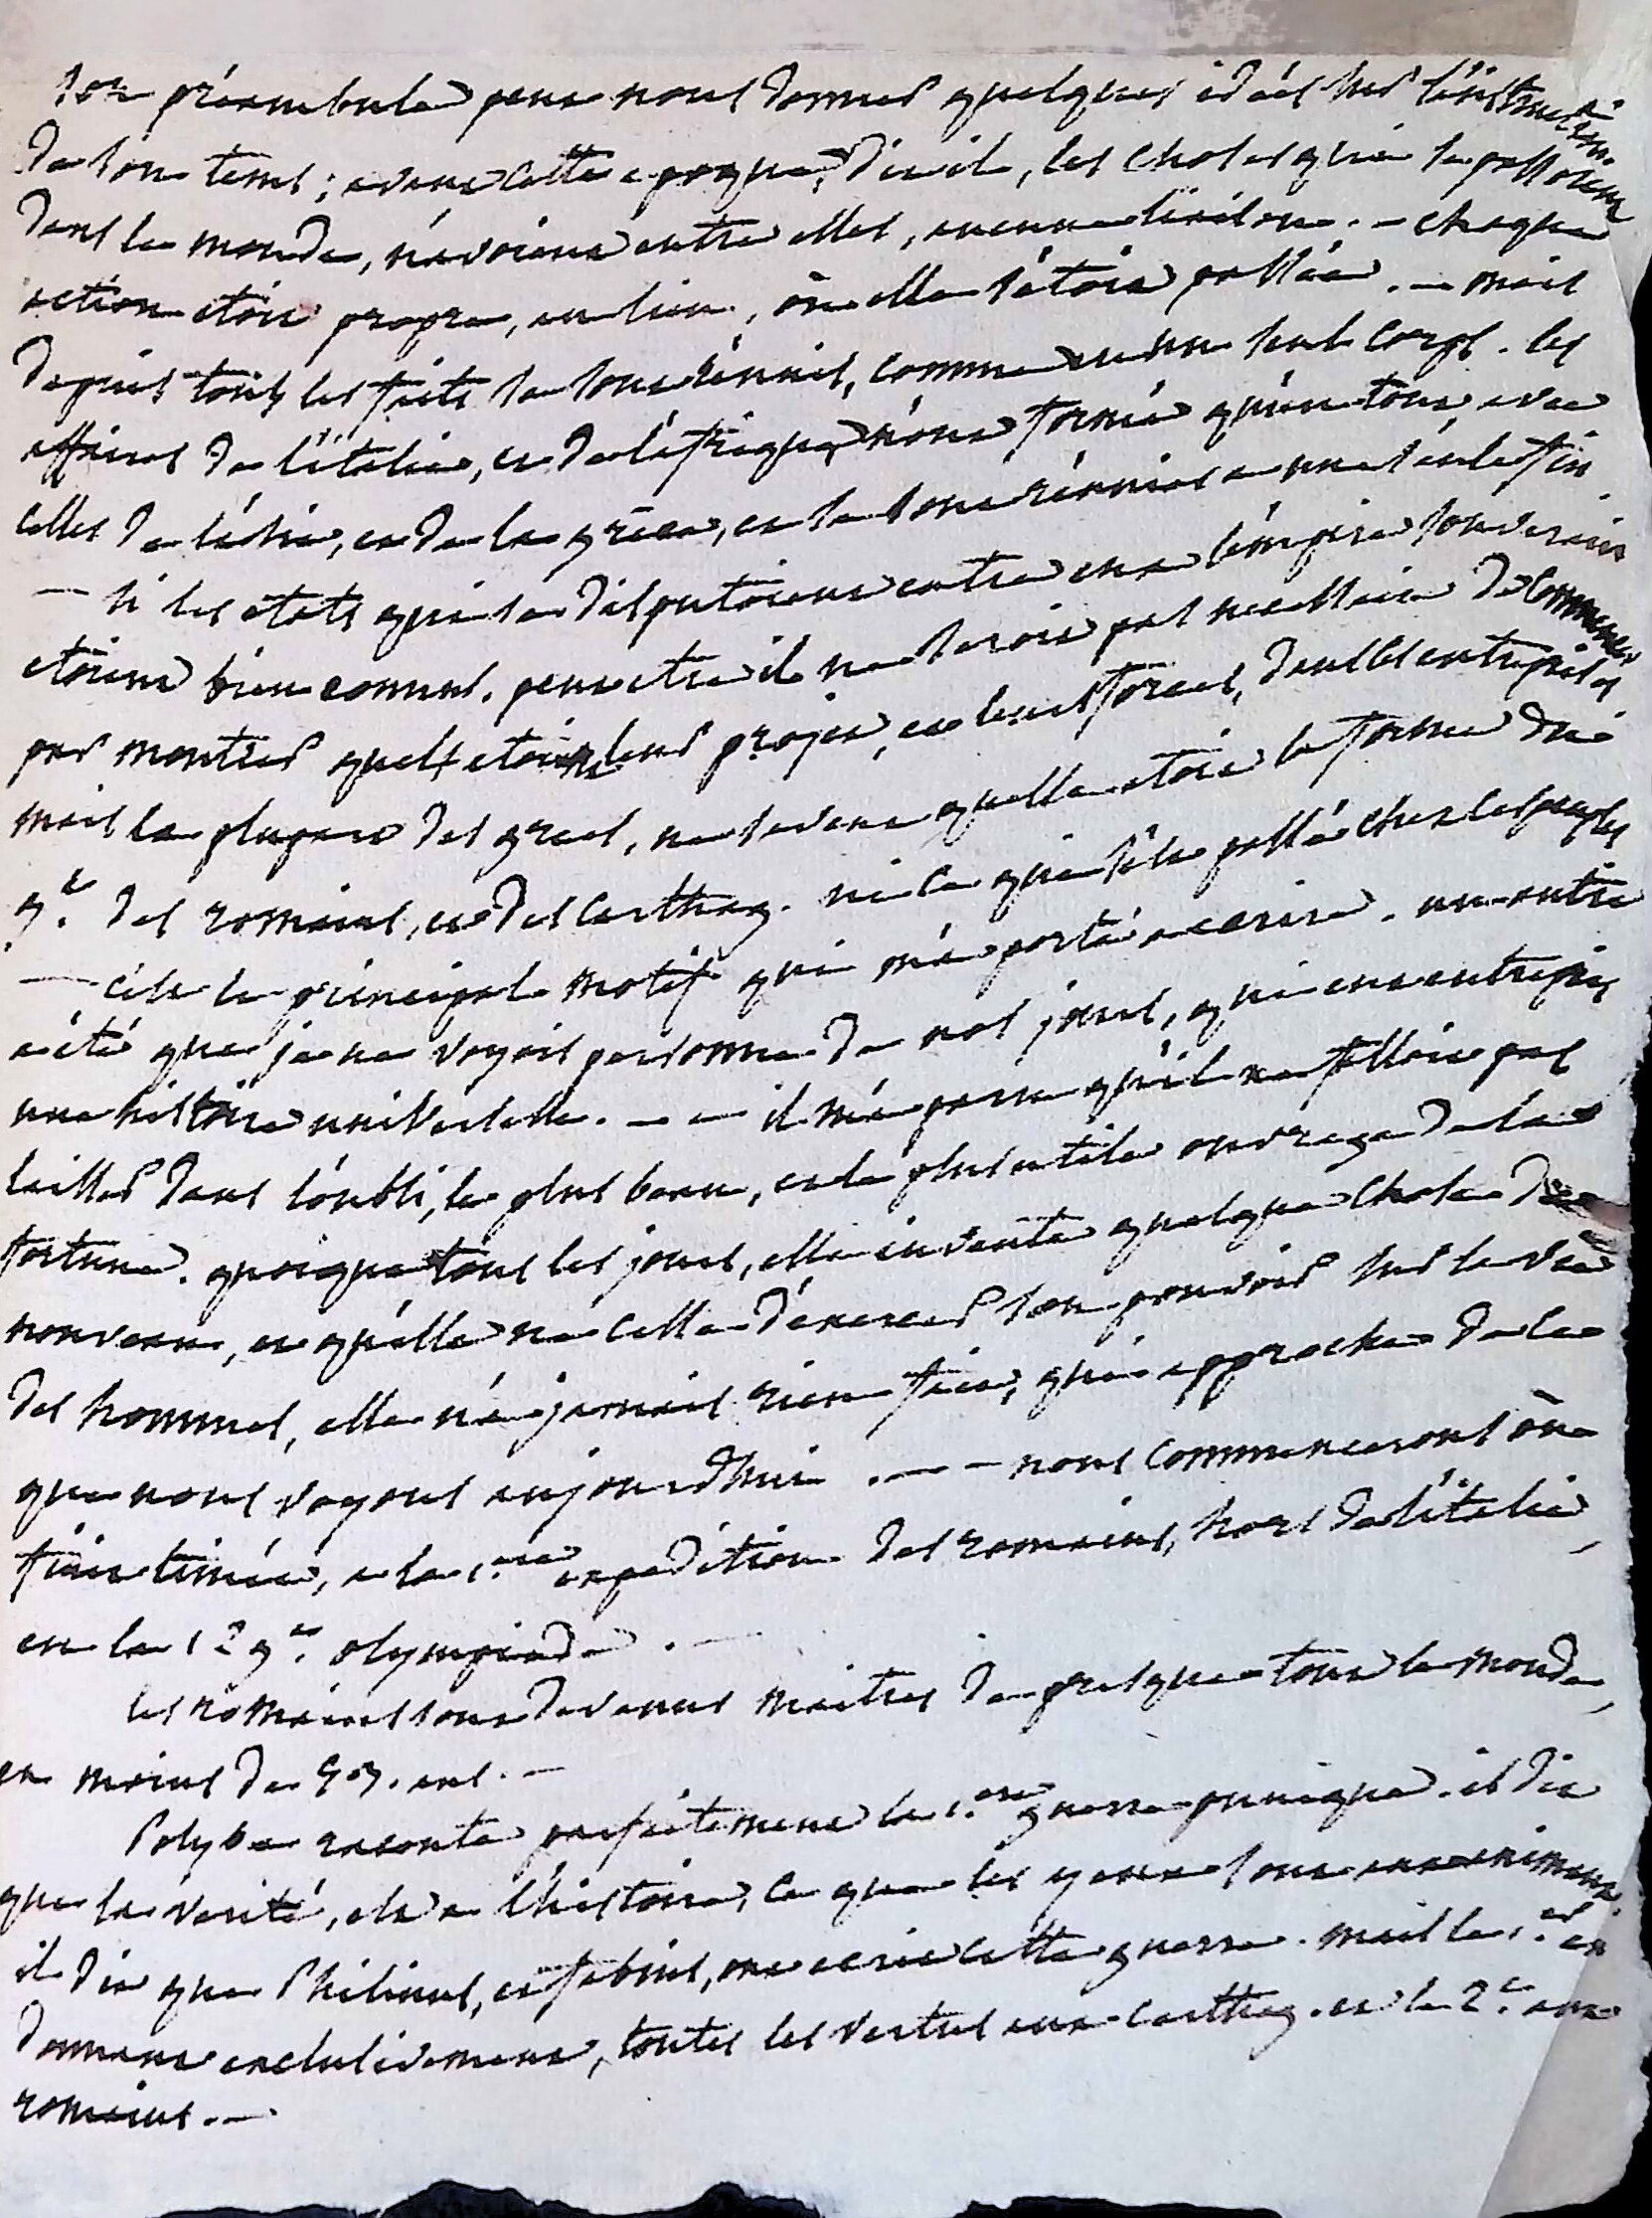 son préambule peut nous donner quelques idées sur l'instruction
de son tems ; avant cette epoque, dit il, les choses qui se passoient
dans le monde, n'avoient entre elles, aucune liaison. - chaque
action etoit propre, au lieu, où elle s'étoit passée. - mais
depuis tous les faits se sont réunis, comme en un seul corps. les
affaires de l'italie, et de l'afrique n'ont formé qu'un tout, avec
celles de l'asie, et de la grèce, et se sont réunies a une seule fin
- si les etats qui se disputoient entre eux l'empire souverain
etoient bien connus. peut etre il ne seroit pas necessaire de commencer
par montrer quels etoient leur projet, et leurs forces, dans ces entreprises
mais la plupart des grecs, ne savent quelle etoit la forme du
g.t des romains, et des carthag. ni ce qui s'est passé chez les peuples
- c'est le principal motif qui m'a porté a ecrire. un autre
a été que je ne voyois personne de nos jours, qui eut entrepris
une histoire universelle. - - il m'a paru qu'il ne falloit pas
laisser dans l'oubli, le plus beau, et le plus utile ouvrage de la
fortune. quoique tous les jours, elle invente quelque chose de
nouveau, et qu'elle ne cesse d'exercer son pouvoir sur la vie
des hommes, elle n'a jamais rien fait, qui approche de ce
que nous voyons aujourdhui . - - nous commencerons où
finit timée, a la 1.ere expedition des romains, hors de l'italie,
en la 129.e olympiade . -
les romains sont devenus maitres de presque tout le monde,
en moins de 53. ans. -
Polybe raconte parfaitement la 1.ere guerre punique. il dit
que la verité, est a l'histoire, ce que les yeux sont aux animaux.
il dit que Philinus, et fabius, ont ecrit cette guerre. mais le 1.er en
donnant exclusivement, toutes les vertus aux carthag. et le 2.e aux
romains. -